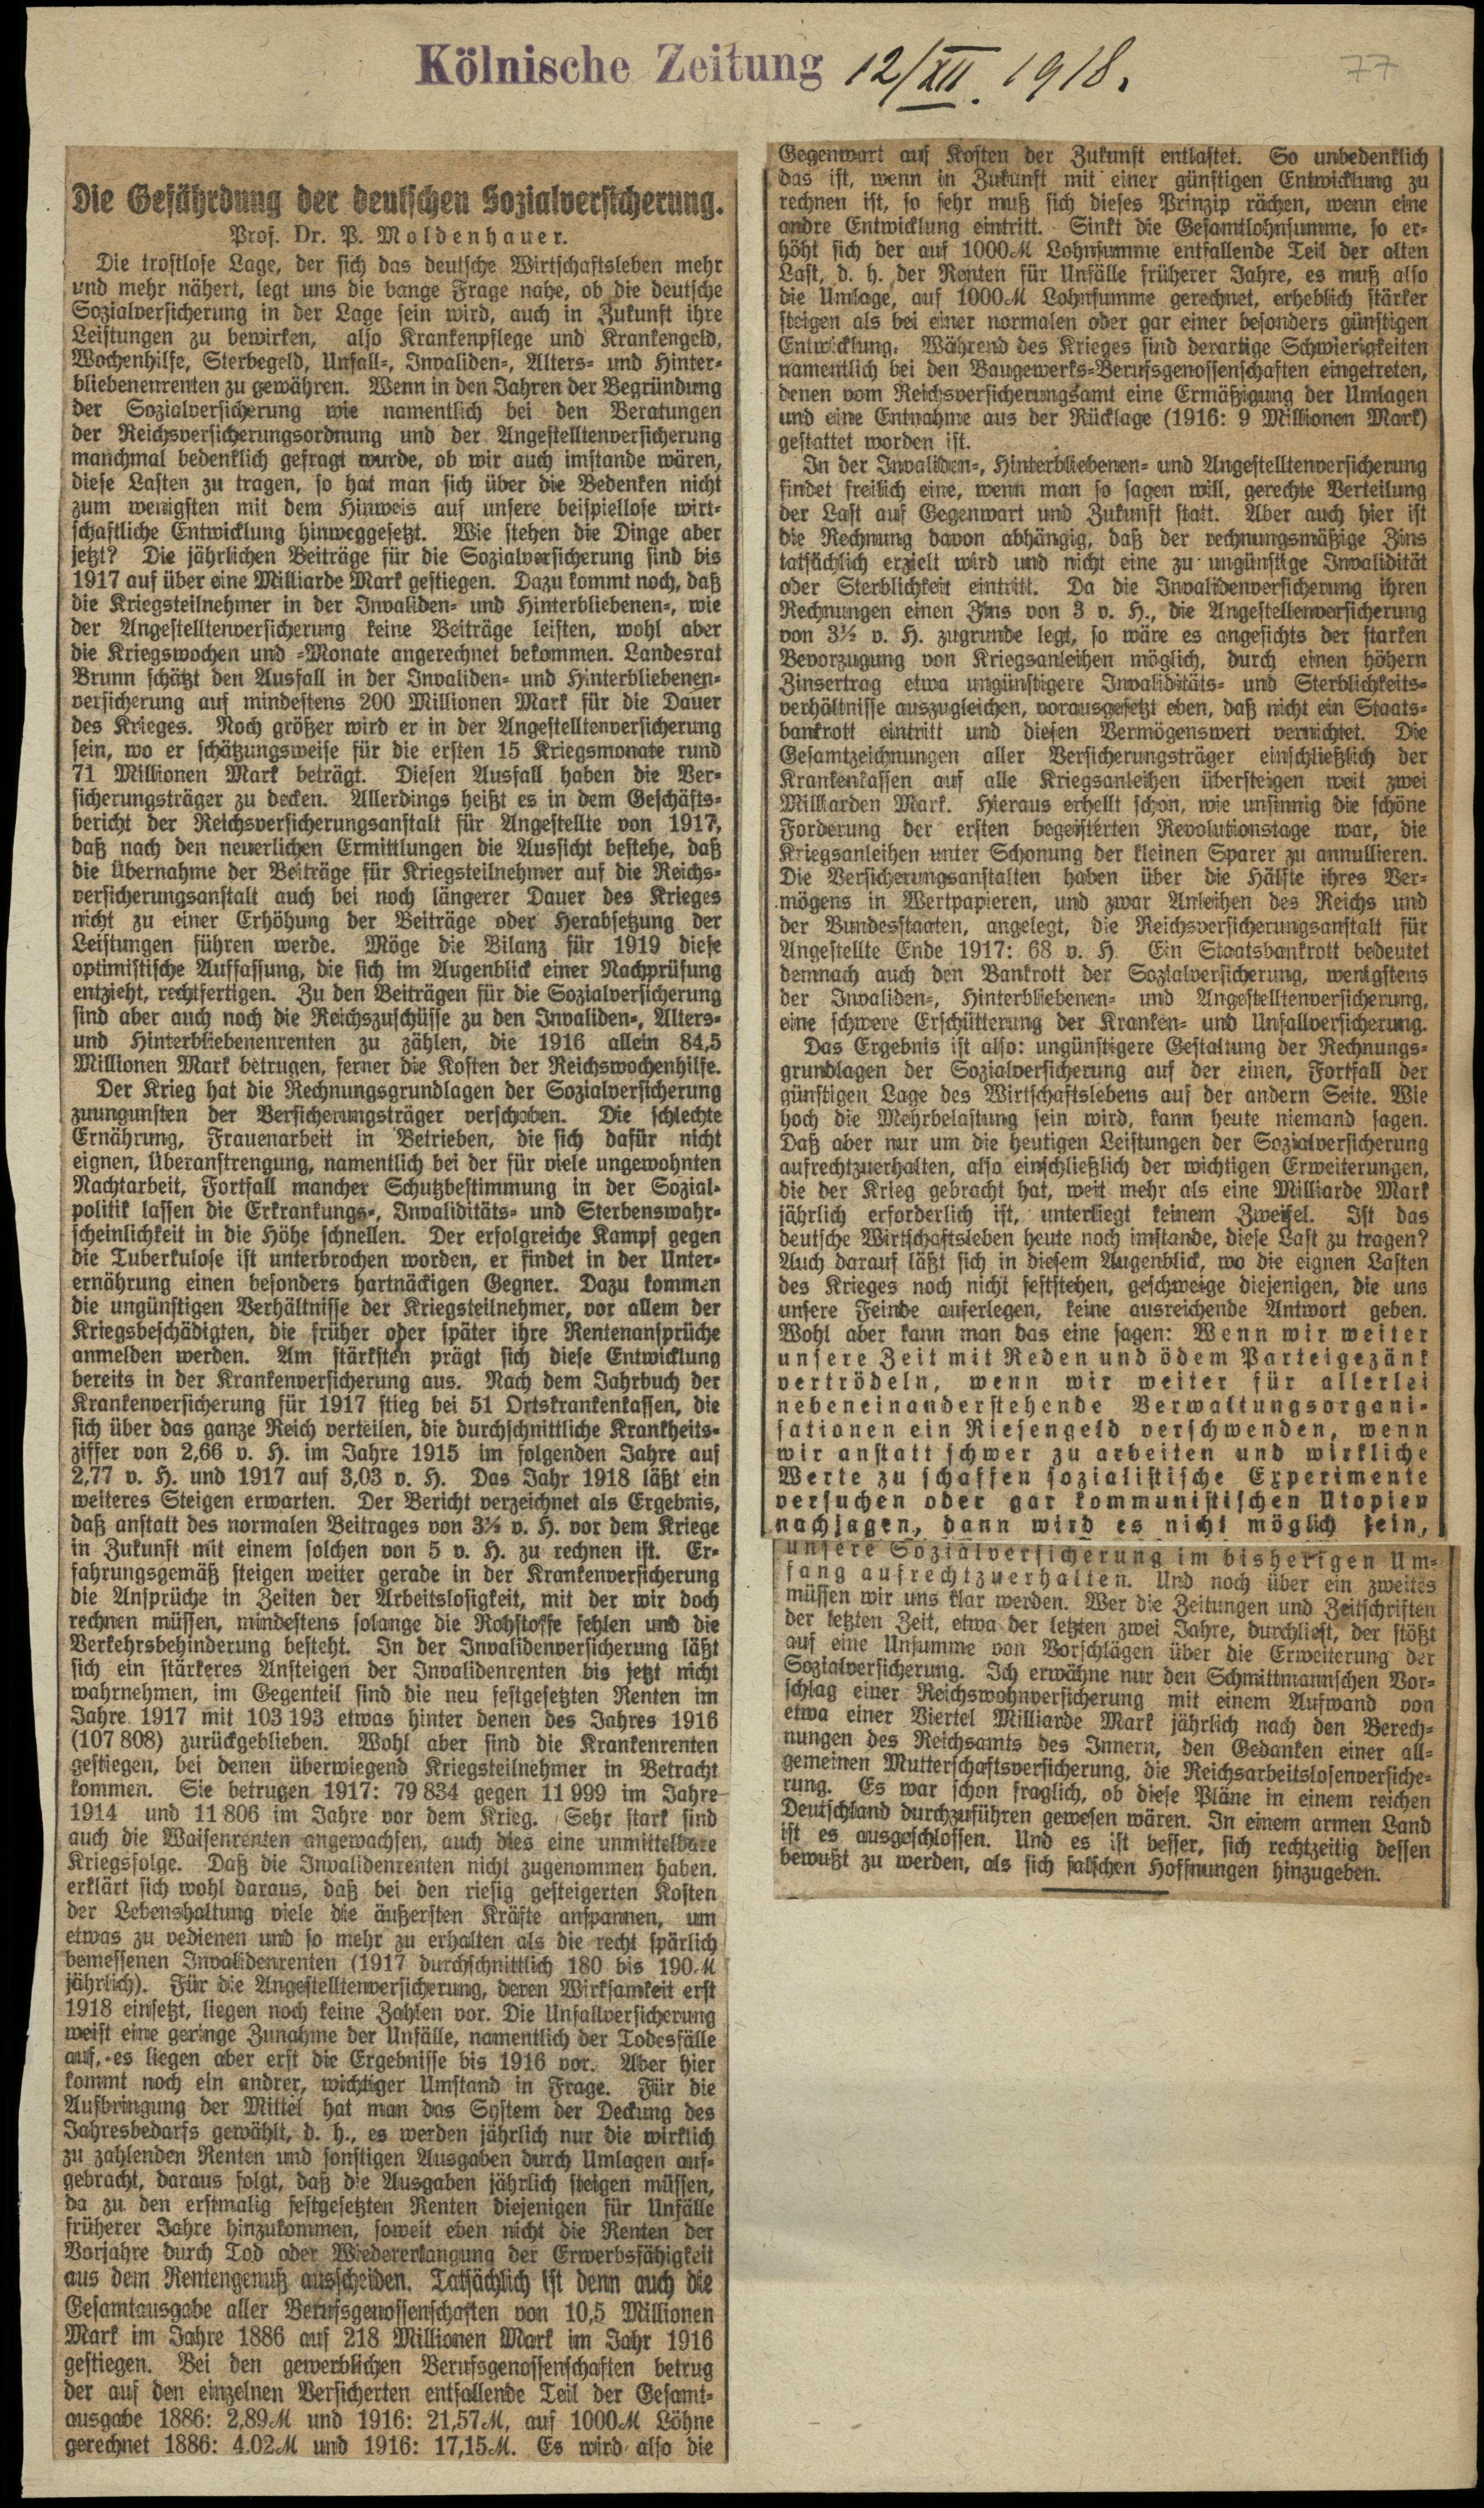 Kölnische Zeitung 12/XII. 1918.
77
Die Gefährdung der deutschen Sozialversicherung.
Prof. Dr. P. Moldenhauer.
Die trostlose Lage, der sich das deutsche Wirtschaftsleben mehr
und mehr nähert, legt uns die bange Frage nahe, ob die deutsche
Sozialversicherung in der Lage sein wird, auch in Zukunft ihre
Leistungen zu bewirken, also Krankenpflege und Krankengeld,
Wochenhilfe, Sterbegeld, Unfall-, Invaliden-, Alters- und Hinter-
bliebenenrenten zu gewähren. Wenn in den Jahren der Begründung
der Sozialversicherung wie namentlich bei den Beratungen
der Reichsversicherungsordnung und der Angestelltenversicherung
manchmal bedenklich gefragt wurde, ob wir auch imstande wären,
diese Lasten zu tragen, so hat man sich über die Bedenken nicht
zum wenigsten mit dem Hinweis auf unsere beispiellose wirt-
schaftliche Entwicklung hinweggesetzt. Wie stehen die Dinge aber
jetzt? Die jährlichen Beiträge für die Sozialversicherung sind bis
1917 auf über eine Milliarde Mark gestiegen. Dazu kommt noch, daß
die Kriegsteilnehmer in der Invaliden- und Hinterbliebenen-, wie
der Angestelltenversicherung keine Beiträge leisten, wohl aber
die Kriegswochen und -Monate angerechnet bekommen. Landesrat
Brunn schätzt den Ausfall in der Invaliden- und Hinterbliebenen-
versicherung auf mindestens 200 Millionen Mark für die Dauer
des Krieges. Noch größer wird er in der Angestelltenversicherung
sein, wo er schätzungsweise für die ersten 15 Kriegsmonate rund
71 Millionen Mark beträgt. Diesen Ausfall haben die Ver-
sicherungsträger zu decken. Allerdings heißt es in dem Geschäfts-
bericht der Reichsversicherungsanstalt für Angestellte von 1917,
daß nach den neuerlichen Ermittlungen die Aussicht bestehe, daß
die Übernahme der Beiträge für Kriegsteilnehmer auf die Reichs-
versicherungsanstalt auch bei noch längerer Dauer des Krieges
nicht zu einer Erhöhung der Beiträge oder Herabsetzung der
Leistungen führen werde. Möge die Bilanz für 1919 diese
optimistische Auffassung, die sich im Augenblick einer Nachprüfung
entzieht, rechtfertigen. Zu den Beiträgen für die Sozialversicherung
sind aber auch noch die Reichszuschüsse zu den Invaliden-, Alters-
und Hinterbliebenenrenten zu zählen, die 1916 allein 84,5
Millionen Mark betrugen, ferner die Kosten der Reichswochenhilfe.
Der Krieg hat die Rechnungsgrundlagen der Sozialversicherung
zuungunsten der Versicherungsträger verschoben. Die schlechte
Ernährung, Frauenarbeit in Betrieben, die sich dafür nicht
eignen, Überanstrengung, namentlich bei der für viele ungewohnten
Nachtarbeit, Fortfall mancher Schutzbestimmung in der Sozial-
politik lassen die Erkrankungs-, Invaliditäts- und Sterbenswahr-
scheinlichkeit in die Höhe schnellen. Der erfolgreiche Kampf gegen
die Tuberkulose ist unterbrochen worden, er findet in der Unter-
ernährung einen besonders hartnäckigen Gegner. Dazu kommen
die ungünstigen Verhältnisse der Kriegsteilnehmer, vor allem der
Kriegsbeschädigten, die früher oder später ihre Rentenansprüche
anmelden werden. Am stärksten prägt sich diese Entwicklung
bereits in der Krankenversicherung aus. Nach dem Jahrbuch der
Krankenversicherung für 1917 stieg bei 51 Ortskrankenkassen, die
sich über das ganze Reich verteilen, die durchschnittliche Krankheits-
ziffer von 2,66 v. H. im Jahre 1915 im folgenden Jahre auf
2,77 v. H. und 1917 auf 3,03 v. H. Das Jahr 1918 läßt ein
weiteres Steigen erwarten. Der Bericht verzeichnet als Ergebnis,
daß anstatt des normalen Beitrages von 3¾ v. H. vor dem Kriege
in Zukunft mit einem solchen von 5 v. H. zu rechnen ist. Er-
fahrungsgemäß steigen weiter gerade in der Krankenversicherung
die Ansprüche in Zeiten der Arbeitslosigkeit, mit der wir doch
rechnen müssen, mindestens solange die Rohstoffe fehlen und die
Verkehrsbehinderung besteht. In der Invalidenversicherung läßt
sich ein stärkeres Ansteigen der Invalidenrenten bis jetzt nicht
wahrnehmen, im Gegenteil sind die neu festgesetzten Renten im
Jahre 1917 mit 103 193 etwas hinter denen des Jahres 1916
(107 808) zurückgeblieben. Wohl aber sind die Krankenrenten
gestiegen, bei denen überwiegend Kriegsteilnehmer in Betracht
kommen. Sie betrugen 1917: 79 834 gegen 11 999 im Jahre
1914 und 11 806 im Jahre vor dem Krieg. Sehr stark sind
auch die Waisenrenten angewachsen, auch dies eine unmittelbare
Kriegsfolge. Daß die Invalidenrenten nicht zugenommen haben,
erklärt sich wohl daraus, daß bei den riesig gesteigerten Kosten
der Lebenshaltung viele die äußersten Kräfte anspannen, um
etwas zu vedienen und so mehr zu erhalten als die recht spärlich
bemessenen Invalidenrenten (1917 durchschnittlich 180 bis 190 M
jährlich). Für die Angestelltenversicherung, deren Wirksamkeit erst
1918 einsetzt, liegen noch keine Zahlen vor. Die Unfallversicherung
weist eine geringe Zunahme der Unfälle, namentlich der Todesfälle
auf, es liegen aber erst die Ergebnisse bis 1916 vor. Aber hier
kommt noch ein andrer, wichtiger Umstand in Frage. Für die
Aufbringung der Mittel hat man das System der Deckung des
Jahresbedarfs gewählt, d. h., es werden jährlich nur die wirklich
zu zahlenden Renten und sonstigen Ausgaben durch Umlagen auf-
gebracht, daraus folgt, daß die Ausgaben jährlich steigen müssen,
da zu den erstmalig festgesetzten Renten diejenigen für Unfälle
früherer Jahre hinzukommen, soweit eben nicht die Renten der
Vorjahre durch Tod oder Wiedererlangung der Erwerbsfähigkeit
aus dem Rentengenuß ausscheiden. Tatsächlich ist denn auch die
Gesamtausgabe aller Berufsgenossenschaften von 10,5 Millionen
Mark im Jahre 1886 auf 218 Millionen Mark im Jahr 1916
gestiegen. Bei den gewerblichen Berufsgenossenschaften betrug
der auf den einzelnen Versicherten entfallende Teil der Gesamt-
ausgabe 1886: 2,89 M und 1916: 21,57 M, auf 1000 M Löhne
gerechnet 1886: 4.02 M und 1916: 17,15 M. Es wird also die
Gegenwart auf Kosten der Zukunft entlastet. So unbedenklich
das ist, wenn in Zukunft mit einer günstigen Entwicklung zu
rechnen ist, so sehr muß sich dieses Prinzip rächen, wenn eine
andre Entwicklung eintritt. Sinkt die Gesamtlohnsumme, so er-
höht sich der auf 1000 M Lohnsumme entfallende Teil der alten
Last, d. h. der Renten für Unfälle früherer Jahre, es muß also
die Umlage, auf 1000 M Lohnsumme gerechnet, erheblich stärker
steigen als bei einer normalen oder gar einer besonders günstigen
Entwicklung. Während des Krieges sind derartige Schwierigkeiten
namentlich bei den Baugewerks-Berufsgenossenschaften eingetreten,
denen vom Reichsversicherungsamt eine Ermäßigung der Umlagen
und eine Entnahme aus der Rücklage (1916: 9 Millionen Mark)
gestattet worden ist.
In der Invaliden-, Hinterbliebenen- und Angestelltenversicherung
findet freilich eine, wenn man so sagen will, gerechte Verteilung
der Last auf Gegenwart und Zukunft statt. Aber auch hier ist
die Rechnung davon abhängig, daß der rechnungsmäßige Zins
tatsächlich erzielt wird und nicht eine zu ungünstige Invalidität
oder Sterblichkeit eintritt. Da die Invalidenversicherung ihren
Rechnungen einen Zins von 3 v. H., die Angestelltenversicherung
von 3½ v. H. zugrunde legt, so wäre es angesichts der starken
Bevorzugung von Kriegsanleihen möglich, durch einen höhern
Zinsertrag etwa ungünstigere Invaliditäts- und Sterblichkeits-
verhältnisse auszugleichen, vorausgesetzt eben, daß nicht ein Staats-
bankrott eintritt und diesen Vermögenswert vernichtet. Die
Gesamtzeichnungen aller Versicherungsträger einschließlich der
Krankenkassen auf alle Kriegsanleihen übersteigen weit zwei
Milliarden Mark. Hieraus erhellt schon, wie unsinnig die schöne
Forderung der ersten begeisterten Revolutionstage war, die
Kriegsanleihen unter Schonung der kleinen Sparer zu annullieren.
Die Versicherungsanstalten haben über die Hälfte ihres Ver-
mögens in Wertpapieren, und zwar Anleihen des Reichs und
der Bundesstaaten, angelegt, die Reichsversicherungsanstalt für
Angestellte Ende 1917: 68 v. H. Ein Staatsbankrott bedeutet
demnach auch den Bankrott der Sozialversicherung, wenigstens
der Invaliden-, Hinterbliebenen- und Angestelltenversicherung,
eine schwere Erschütterung der Kranken- und Unfallversicherung.
Das Ergebnis ist also: ungünstigere Gestaltung der Rechnungs-
grundlagen der Sozialversicherung auf der einen, Fortfall der
günstigen Lage des Wirtschaftslebens auf der andern Seite. Wie
hoch die Mehrbelastung sein wird, kann heute niemand sagen.
Daß aber nur um die heutigen Leistungen der Sozialversicherung
aufrechtzuerhalten, also einschließlich der wichtigen Erweiterungen,
die der Krieg gebracht hat, weit mehr als eine Milliarde Mark
jährlich erforderlich ist, unterliegt keinem Zweifel. Ist das
deutsche Wirtschaftsleben heute noch imstande, diese Last zu tragen?
Auch darauf läßt sich in diesem Augenblick, wo die eignen Lasten
des Krieges noch nicht feststehen, geschweige diejenigen, die uns
unsere Feinde auferlegen, keine ausreichende Antwort geben.
Wohl aber kann man das eine sagen: Wenn wir weiter
unsere Zeit mit Reden und ödem Parteigezänk
vertrödeln, wenn wir weiter für allerlei
nebeneinanderstehende Verwaltungsorgani-
sationen ein Riesengeld verschwenden, wenn
wir anstatt schwer zu arbeiten und wirkliche
Werte zu schaffen sozialistische Experimente
versuchen oder gar kommunistischen Utopien
nachjagen, dann wird es nicht möglich sein,
unsere Sozialversicherung im bisherigen Um-
fang aufrechtzuerhalten. Und noch über ein zweites
müssen wir uns klar werden. Wer die Zeitungen und Zeitschriften
der letzten Zeit, etwa der letzten zwei Jahre, durchliest, der stößt
auf eine Unsumme von Vorschlägen über die Erweiterung der
Sozialversicherung. Ich erwähne nur den Schmittmannschen Vor-
schlag einer Reichswohnversicherung mit einem Aufwand von
etwa einer Viertel Milliarde Mark jährlich nach den Berech-
nungen des Reichsamts des Innern, den Gedanken einer all-
gemeinen Mutterschaftsversicherung, die Reichsarbeitslosenversiche-
rung. Es war schon fraglich, ob diese Pläne in einem reichen
Deutschland durchzuführen gewesen wären. In einem armen Land
ist es ausgeschlossen. Und es ist besser, sich rechtzeitig dessen
bewußt zu werden, als sich falschen Hoffnungen hinzugeben.